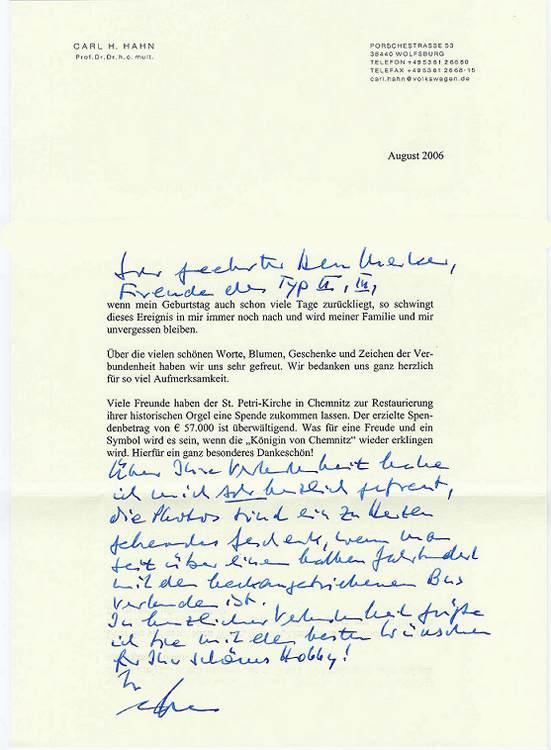 CARL H. HAHN
Prof. Dr. Dr. h.c. mult.
PORSCHESTRASSE 53
38440 WOLFSBURG
TELEFON +495361 26680
TELEFAX +495361 2668-15
carl.hahn@volkswagen.de
August 2006
Sehr geehrter Herr Merker,
Freunde des Typ II, III,
wenn mein Geburtstag auch schon viele Tage zurückliegt, so schwingt
dieses Ereignis in mir immer noch nach und wird meiner Familie und mir
unvergessen bleiben.
Über die vielen schönen Worte, Blumen, Geschenke und Zeichen der Ver-
bundenheit haben wir uns sehr gefreut. Wir bedanken uns ganz herzlich
für so viel Aufmerksamkeit.
Viele Freunde haben der St. Petri-Kirche in Chemnitz zur Restaurierung
ihrer historischen Orgel eine Spende zukommen lassen. Der erzielte Spen-
denbetrag von € 57.000 ist überwältigend. Was für eine Freude und ein
Symbol wird es sein, wenn die „Königin von Chemnitz“ wieder erklingen
wird. Hierfür ein ganz besonderes Dankeschön!
Über Ihre Verbundenheit habe
ich mich sehr herzlich gefreut,
die Photos sind ein zu Herzen
gehendes Geschenk, wenn man
seit über einem halben Jahrhundert
mit dem heckangetriebenen Bus
verbunden ist.
In herzlicher Verbundenheit grüße
ich Sie mit den besten Wünschen
für Ihr schönes Hobby!
Ihr